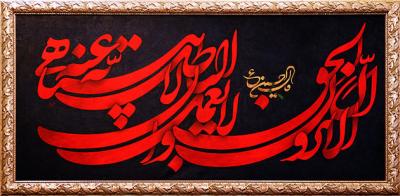 قال الحسین ع
الا ترون الی الحق لا یعمل به و الی الباطل لا یتناهی عنه